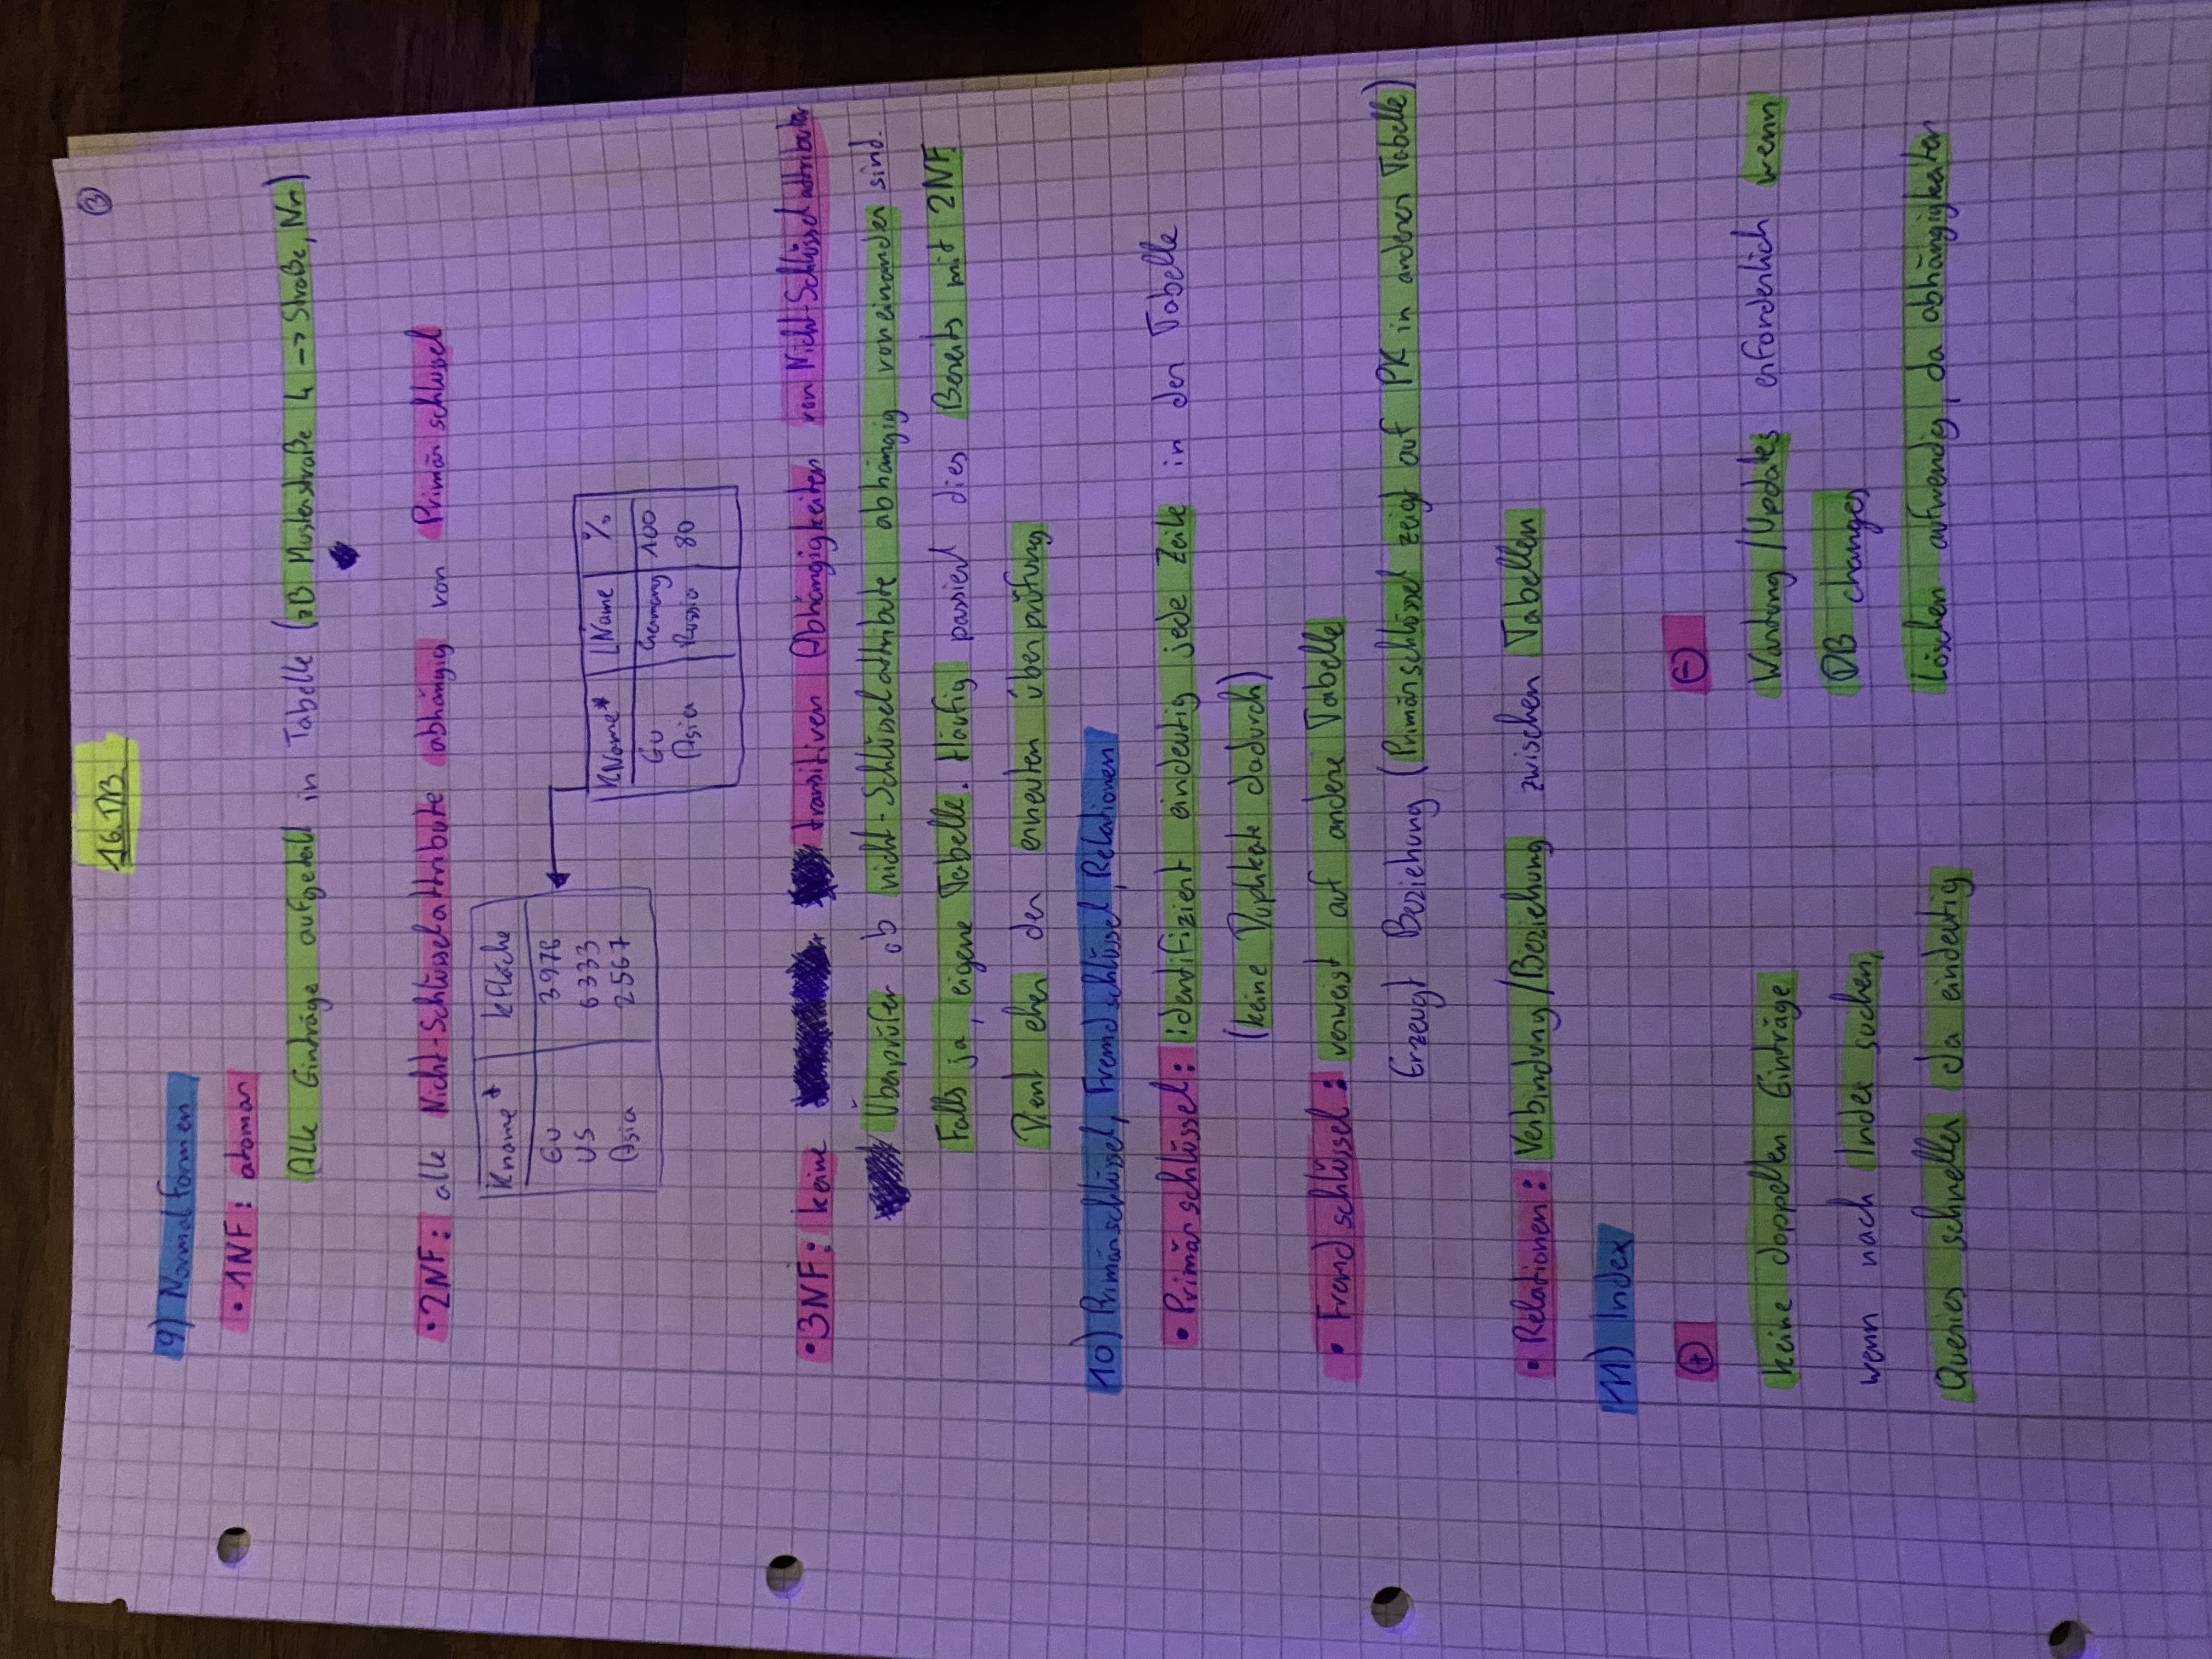 16. DB
3
9) Normalformen
• 1NF: atomar
Alle Einträge aufgeteilt in Tabelle (zB Musterstraße 4 → Straße, Nr)
• 2NF: alle Nicht-Schlüsselattribute abhängig von Primärschlüssel
Kname* kFläche
EU 3976
US 6333
Asia 2567
KName* LName %
EU Germany 100
Asia Russia 80
• 3NF: keine transitiven Abhängigkeiten von Nicht-Schlüsselattributen
Überprüfen ob nicht-Schlüsselattribute abhängig voneinander sind.
Falls ja, eigene Tabelle. Häufig passiert dies Bereits mit 2NF.
Dient eher der erneuten überprüfung
10) Primärschlüssel, Fremdschlüssel, Relationen
• Primärschlüssel: identifiziert eindeutig jede Zeile in der Tabelle
(keine Duplikate dadurch)
• Fremdschlüssel: verweist auf andere Tabelle
Erzeugt Beziehung (Primärschlüssel zeigt auf PK in anderer Tabelle)
• Relationen: Verbindung/Beziehung zwischen Tabellen
11) Index
+ −
keine doppelten Einträge
wenn nach Index suchen,
Queries schneller da eindeutig
Wartung/Updates erforderlich wenn
DB changes
Löschen aufwendig, da abhängigkeiten